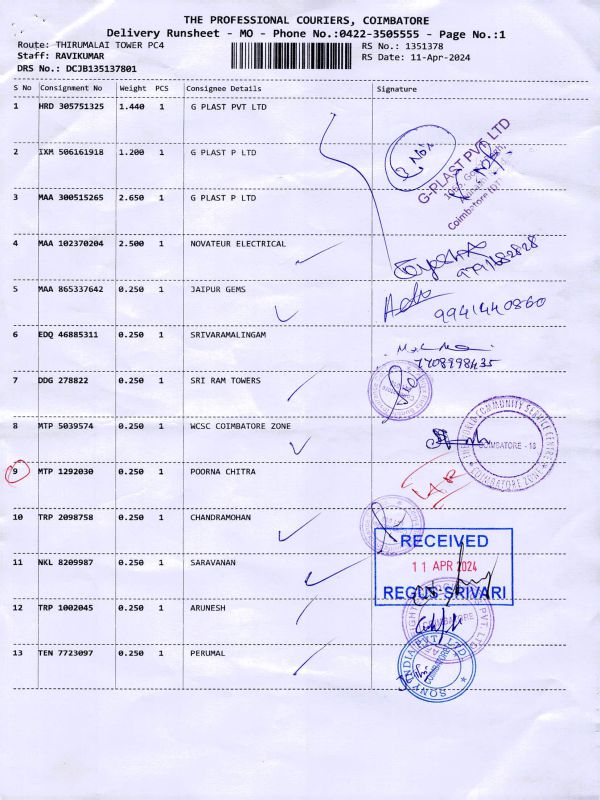 THE PROFESSIONAL COURIERS, COIMBATORE
Delivery Runsheet - MO - Phone No.:0422-3505555 - Page No.:1
Route: THIRUMALAI TOWER PC4
RS No.: 1351378
Staff: RAVIKUMAR
RS Date: 11-Apr-2024
DRS No.: DCJB135137801
S No Consignment No Weight PCS Consignee Details Signature
1 HRD 305751325 1.440 1 G PLAST PVT LTD
2 IXM 506161918 1.200 1 G PLAST P LTD
G-PLAST PVT LTD
3 MAA 300515265 2.650 1 G PLAST P LTD
4 MAA 102370204 2.500 1 NOVATEUR ELECTRICAL
5 MAA 865337642 0.250 1 JAIPUR GEMS
9941440860
6 EDQ 46885311 0.250 1 SRIVARAMALINGAM
7708998435
7 DDG 278822 0.250 1 SRI RAM TOWERS
8 MTP 5039574 0.250 1 WCSC COIMBATORE ZONE
THE WORLD COMMUNITY SERVICE CENTRE
COIMBATORE - 18
COIMBATORE ZONE
9 MTP 1292030 0.250 1 POORNA CHITRA
10 TRP 2098758 0.250 1 CHANDRAMOHAN
RECEIVED
11 NKL 8209987 0.250 1 SARAVANAN
11 APR 2024
REGUS SRIVARI
12 TRP 1002045 0.250 1 ARUNESH
COIMBATORE
13 TEN 7723097 0.250 1 PERUMAL
SONY INDIA PVT. LTD.